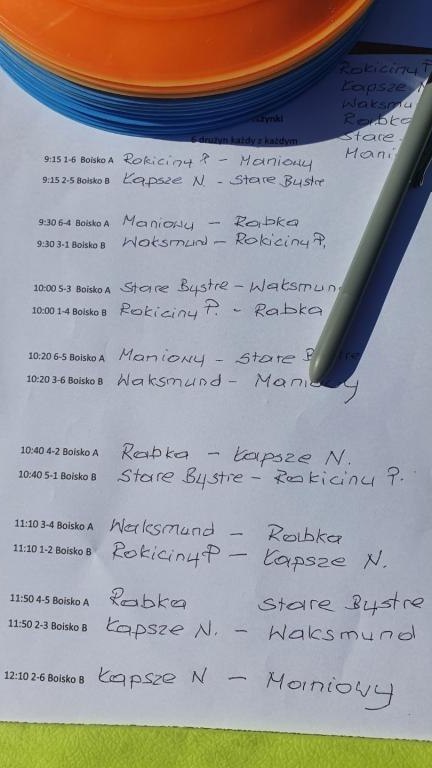 Rokiciny P.
Kapsze N
Waksmu
Rabka
Stare
Mani
6 drużyn każdy z każdym
9:15 1-6 Boisko A Rokiciny P - Maniowy
9:15 2-5 Boisko B Łapsze N. - Stare Bystre
9:30 6-4 Boisko A Maniowy - Rabka
9:30 3-1 Boisko B Waksmund - Rokiciny P.
10:00 5-3 Boisko A Stare Bystre - Waksmun
10:00 1-4 Boisko B Rokiciny P. - Rabka
10:20 6-5 Boisko A Maniowy - Stare B
10:20 3-6 Boisko B Waksmund - Maniowy
10:40 4-2 Boisko A Rabka - Łapsze N.
10:40 5-1 Boisko B Stare Bystre - Rokiciny P.
11:10 3-4 Boisko A Waksmund - Rabka
11:10 1-2 Boisko B Rokiciny P - Łapsze N.
11:50 4-5 Boisko A Rabka Stare Bystre
11:50 2-3 Boisko B Łapsze N. - Waksmund
12:10 2-6 Boisko B Łapsze N - Maniowy